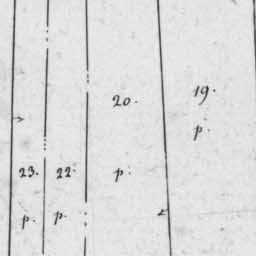 20.
19.
p.
23.
22.
p.
p.
p.